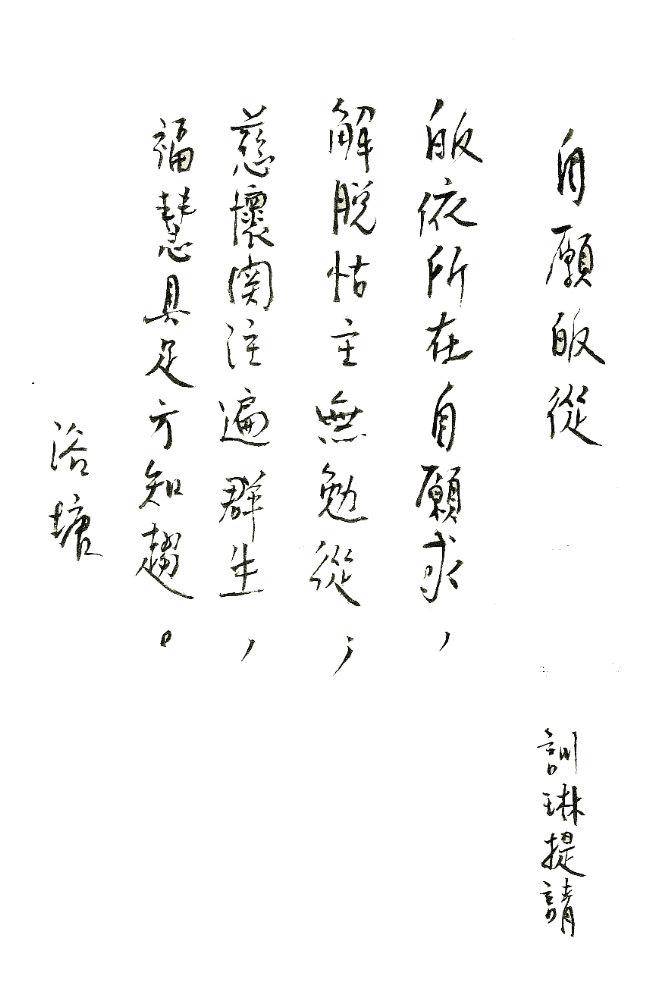 自願皈從
訓琳提請
皈依所在自願求，
解脫怙主無勉從；
慈懷関注遍群生，
福慧具足方知趨。
浴塘